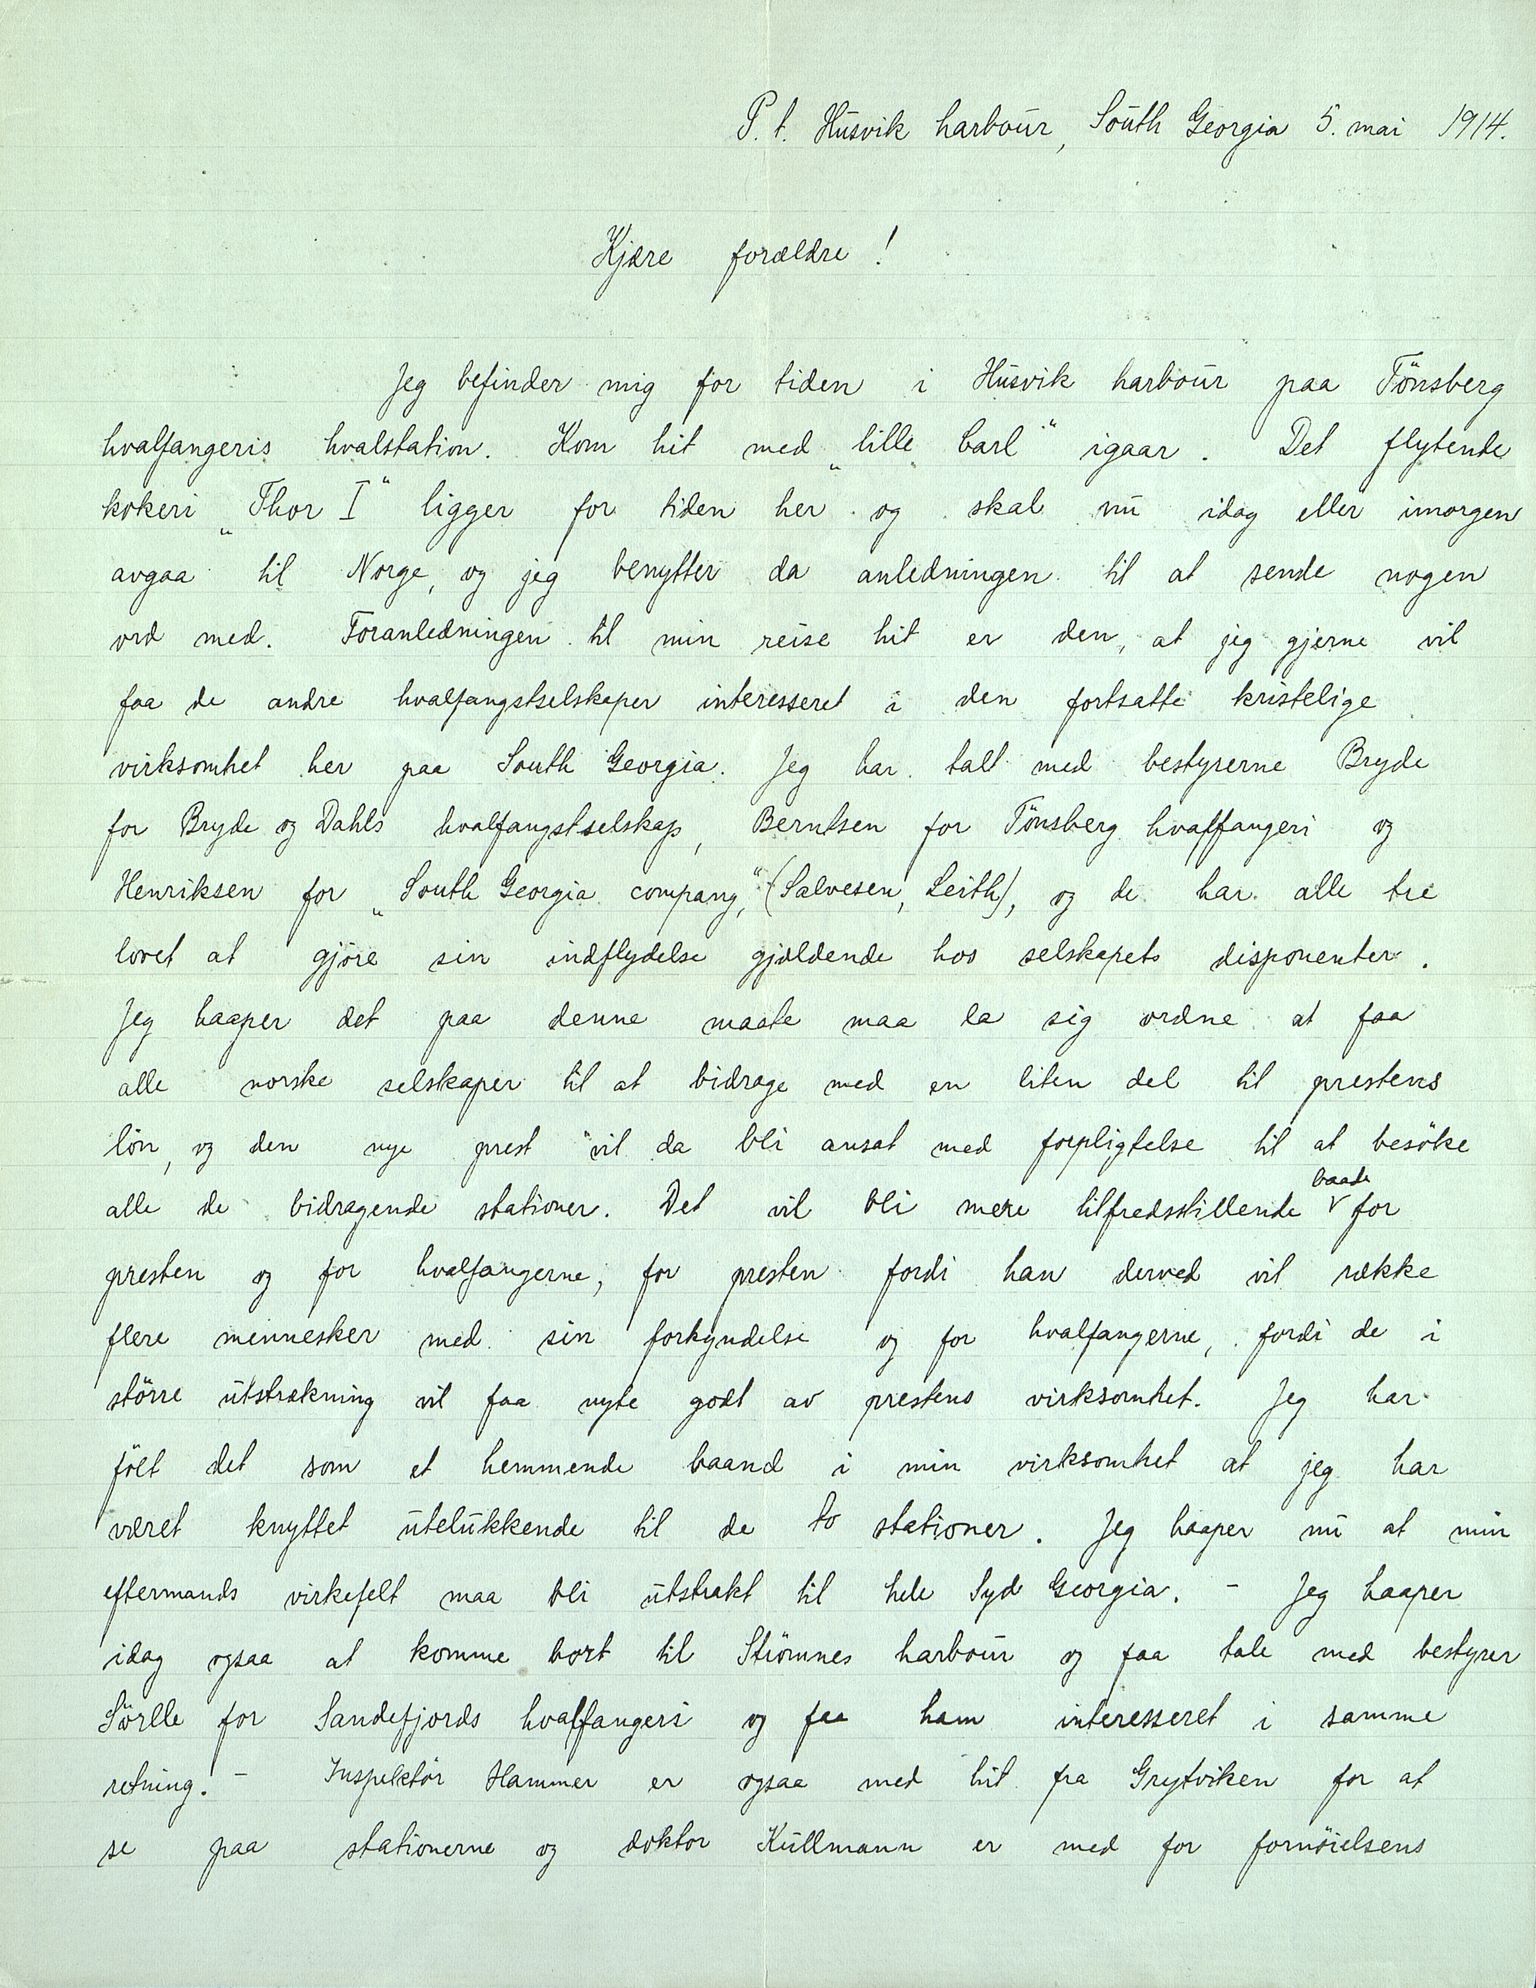 P. t. Husvik harbour, South Georgia 5. mai 1914.
Kjære forældre!
Jeg befinder mig for tiden i Husvik harbour paa Tönsberg
hvalfangeris hvalstation. Kom hit med „lille Carl" igaar. Det flytende
kokeri „Thor I" ligger for tiden her og skal nu idag eller imorgen
avgaa til Norge, og jeg benytter da anledningen til at sende nogen
ord med. Foranledningen til min reise hit er den, at jeg gjerne vil
faa de andre hvalfangstselskaper interesseret i den fortsatte kristelige
virksomhet her paa South Georgia. Jeg har talt med bestyrerne Bryde
for Bryde og Dahls hvalfangstselskap, Berntsen for Tönsberg hvalfangeri og
Henriksen for „South Georgia company," (Salvesen, Leith), og de har alle tre
lovet at gjöre sin indflydelse gjældende hos selskapets disponenter.
Jeg haaper det paa denne maate maa la sig ordne at faa
alle norske selskaper til at bidrage med en liten del til prestens
lön, og den nye prest vil da bli ansat med forpligtelse til at besöke
alle de bidragende stationer. Det vil bli mere tilfredsstillende baade for
presten og for hvalfangerne, for presten fordi han derved vil række
flere mennesker med sin forkyndelse og for hvalfangerne, fordi de i
större utstrækning vil faa nyte godt av prestens virksomhet. Jeg har
fölt det som et hemmende baand i min virksomhet at jeg har
været knyttet utelukkende til de to stationer. Jeg haaper nu at min
eftermands virkefelt maa bli utstrakt til hele Syd Georgia. - Jeg haaper
idag ogsaa at komme bort til Strömnes harbour og faa tale med bestyrer
Sörlle for Sandefjords hvalfangeri og faa ham interesseret i samme
retning. - Inspektör Hammer er ogsaa med hit fra Grytviken for at
se paa stationerne og doktor Kullmann er med for fornöielsens